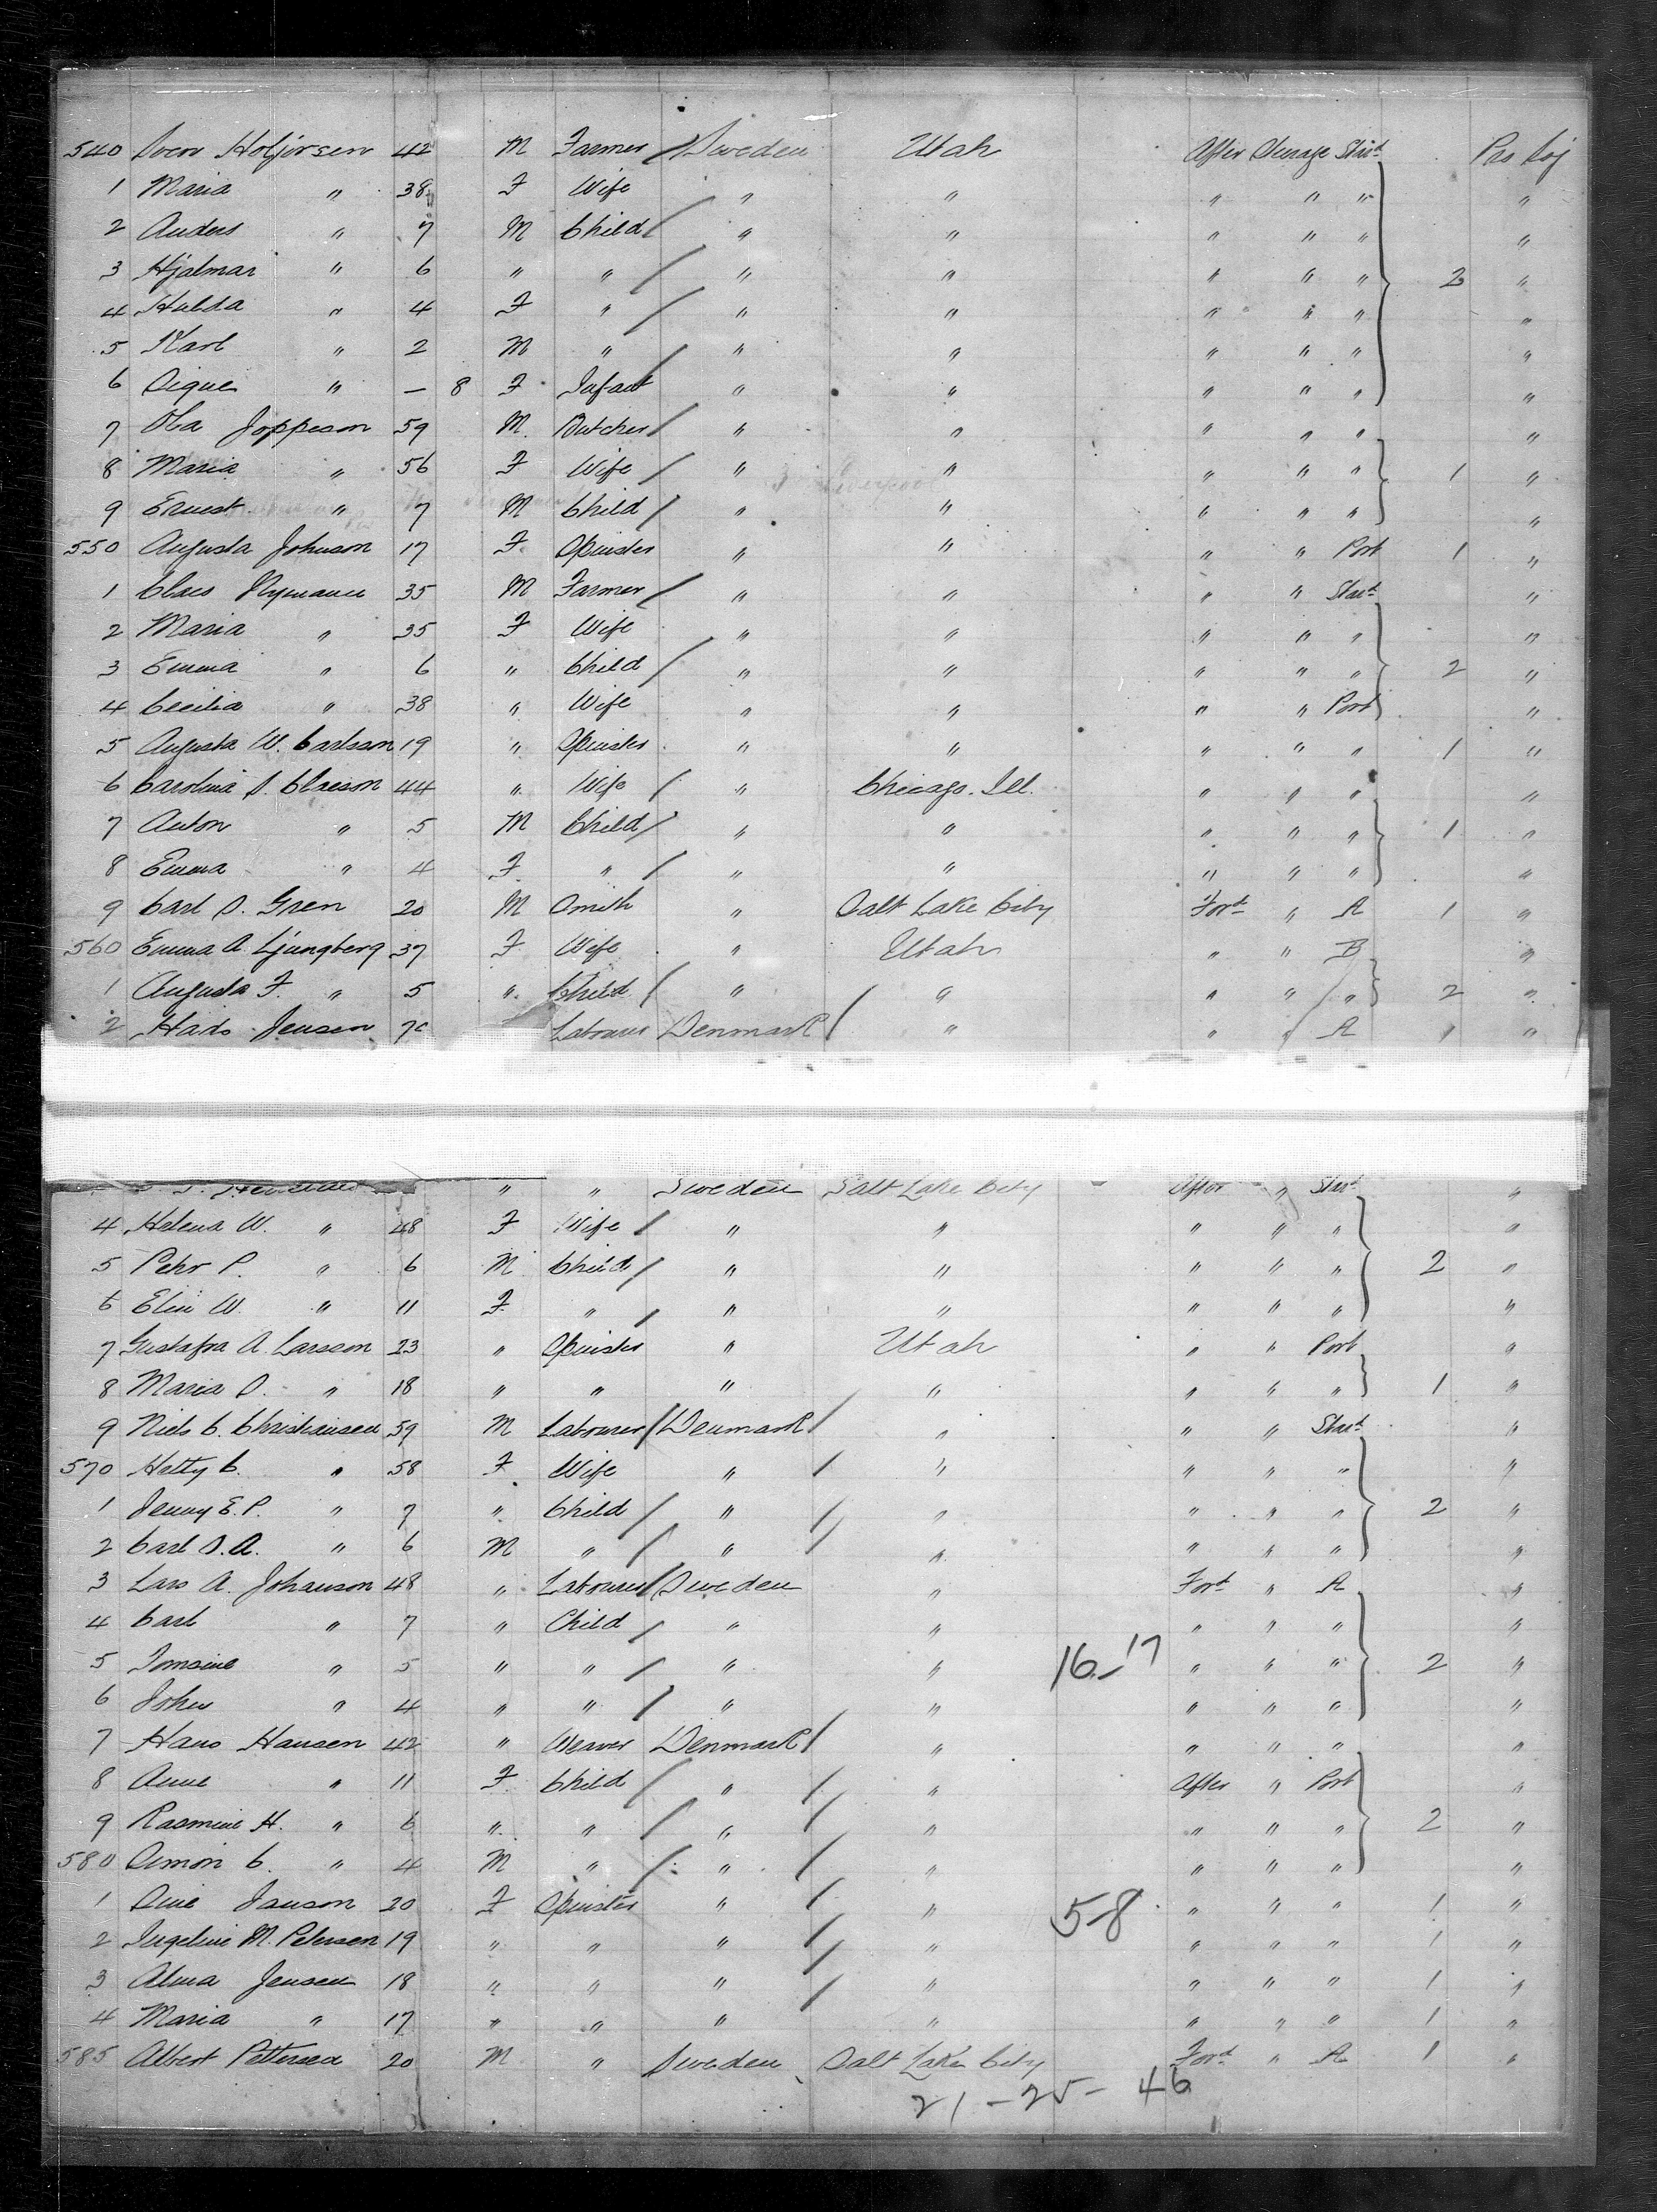 540 Sven Holjersen 42 M Farmer Sweden Utah After Steerage Starb^d Pro Soj
1 Maria " 38 F Wife " " " " " "
2 Anders " 7 M Child " " " " " "
3 Hjalmar " 6 " " " " " " " 2 "
4 Hulda " 4 F " " " " " " "
5 Karl " 2 M " " " " " " "
6 Signe " — 8 F Infant " " " " " "
7 Ola Joppeson 59 M Butcher " " " " " "
8 Maria " 56 F Wife " " " " " 1 "
9 Ernest " 7 M Child " " " " " "
550 Augusta Johnson 17 F Spinster " " " " Port 1 "
1 Claes Nymann 35 M Farmer " " " " Starb^d "
2 Maria " 35 F Wife " " " " " "
3 Emma " 6 " Child " " " " " 2 "
4 Cecilia " 38 " Wife " " " " Port "
5 Augusta W. Carlsson 19 " Spinster " " " " " 1 "
6 Carolina S. Claeson 44 " Wife " Chicago. Ill. " " " "
7 Anton " 5 M Child " " " " " 1 "
8 Emma " 4 F " " " " " " "
9 Carl S. Gren 20 M Smith " Salt Lake City For^d " A 1 "
560 Emma A. Ljungberg 37 F Wife " Utah " " B "
1 Augusta F. " 5 " Child " " " " " 2 "
2 Hads Jensen 70 Labourer Denmark " " " A 1 "
" " Sweden Salt Lake City After " Starb^d "
4 Helena W. " 48 F Wife " " " " " "
5 Pehr P. " 6 M Child " " " " " 2 "
6 Elin W. " 11 F " " " " " " "
7 Gustafva A. Larsson 23 " Spinster " Utah " " Port "
8 Maria S. " 18 " " " " " " " 1 "
9 Niels C. Christiansen 59 M Labourer Denmark " " " Starb^d "
570 Hetty C. " 58 F Wife " " " " " "
1 Jenny E. P. " 7 " Child " " " " " 2 "
2 Carl S. A. " 6 M " " " " " " "
3 Lars A. Johanson 48 " Labourer Sweden " For^d " A "
4 Carl " 7 " Child " " " " " "
5 " 5 " " " " 16-17 " " " 2 "
6 John " 4 " " " " " " " "
7 Hans Hansen 42 " Weaver Denmark " " " " "
8 Anne " 11 F Child " " After " Port "
9 Rasmine H. " 6 " " " " " " " 2 "
580 Simon C. " 4 M " " " " " " "
1 Sine Janson 20 F Spinster " " 58 " " " 1 "
2 Ingeline M. Petersen 19 " " " " " " " 1 "
3 Alma Jensen 18 " " " " " " " 1 "
4 Maria " 17 " " " " " " " 1 "
585 Albert Pettersen 20 M " Sweden Salt Lake City For^d " A 1 "
21-25-46